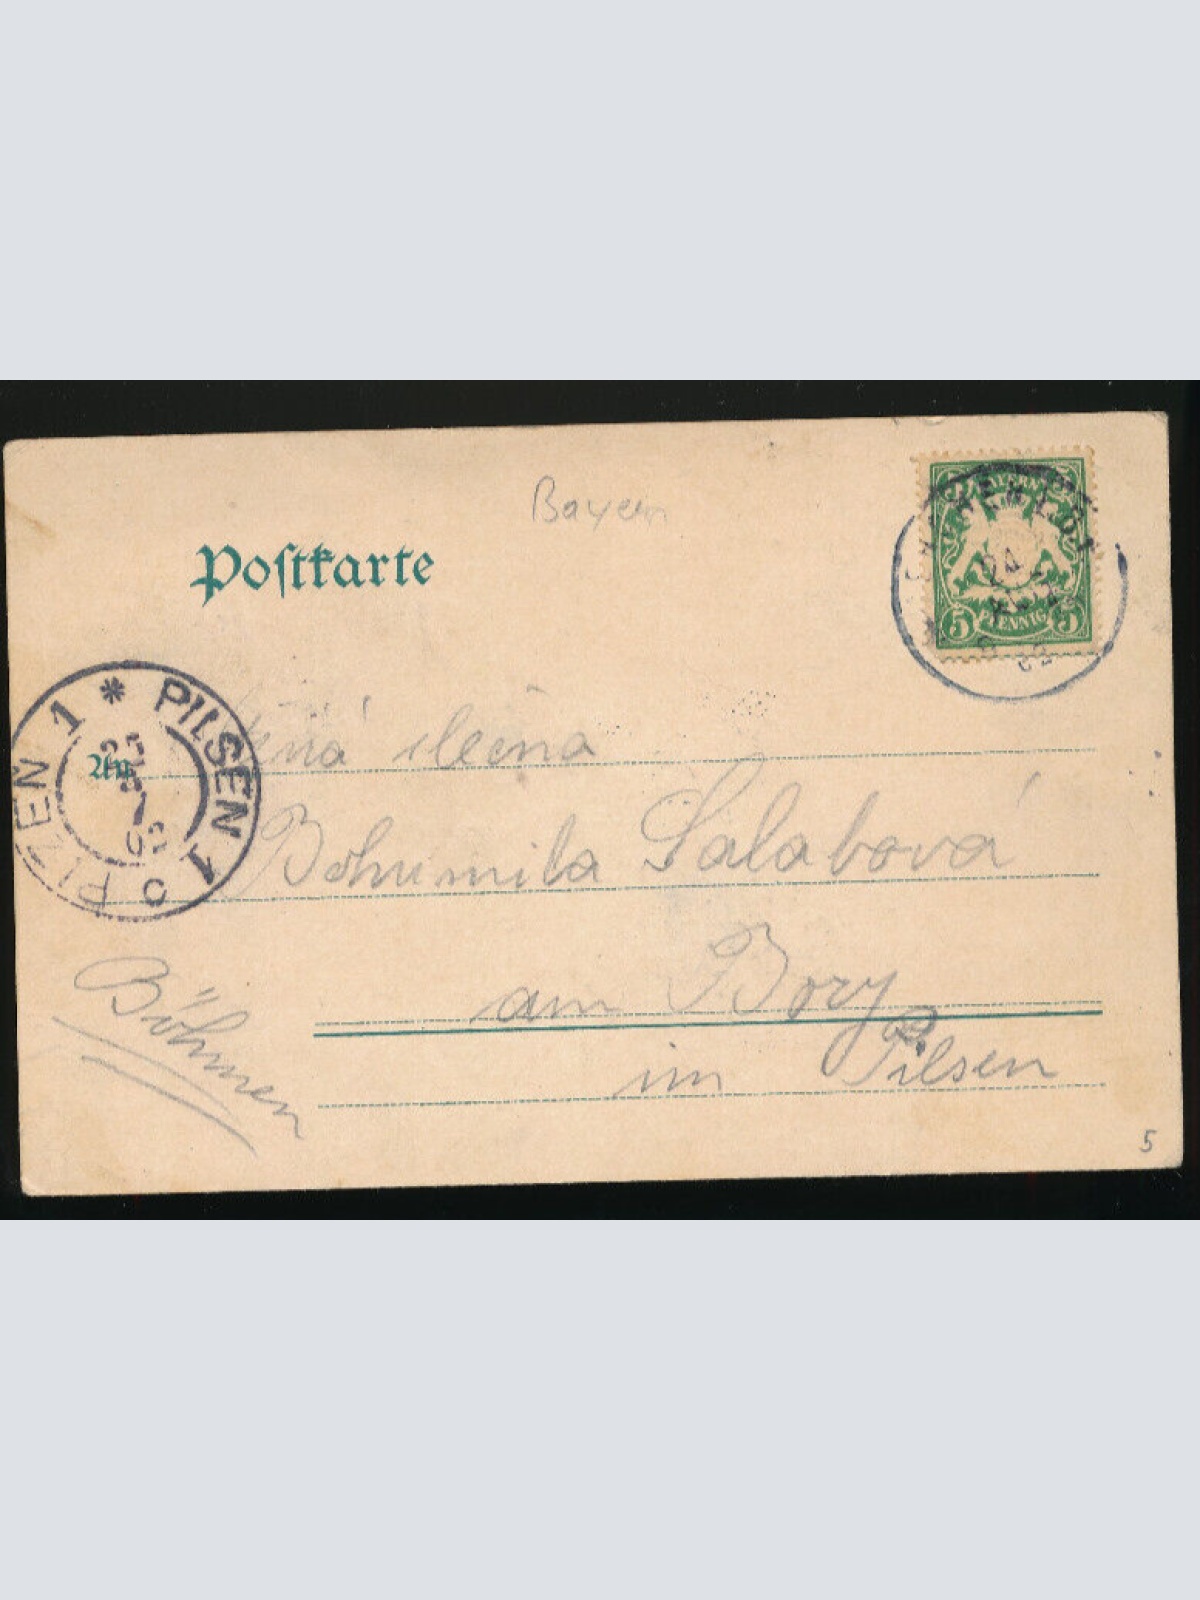 Bayern
Postkarte
BAYERN
5 PFENNIG 5
PILSEN 1
PLZEN 1
25
7
02
An
slečna
Bohumila Salabová
am Bory
im Pilsen
Böhmen
5